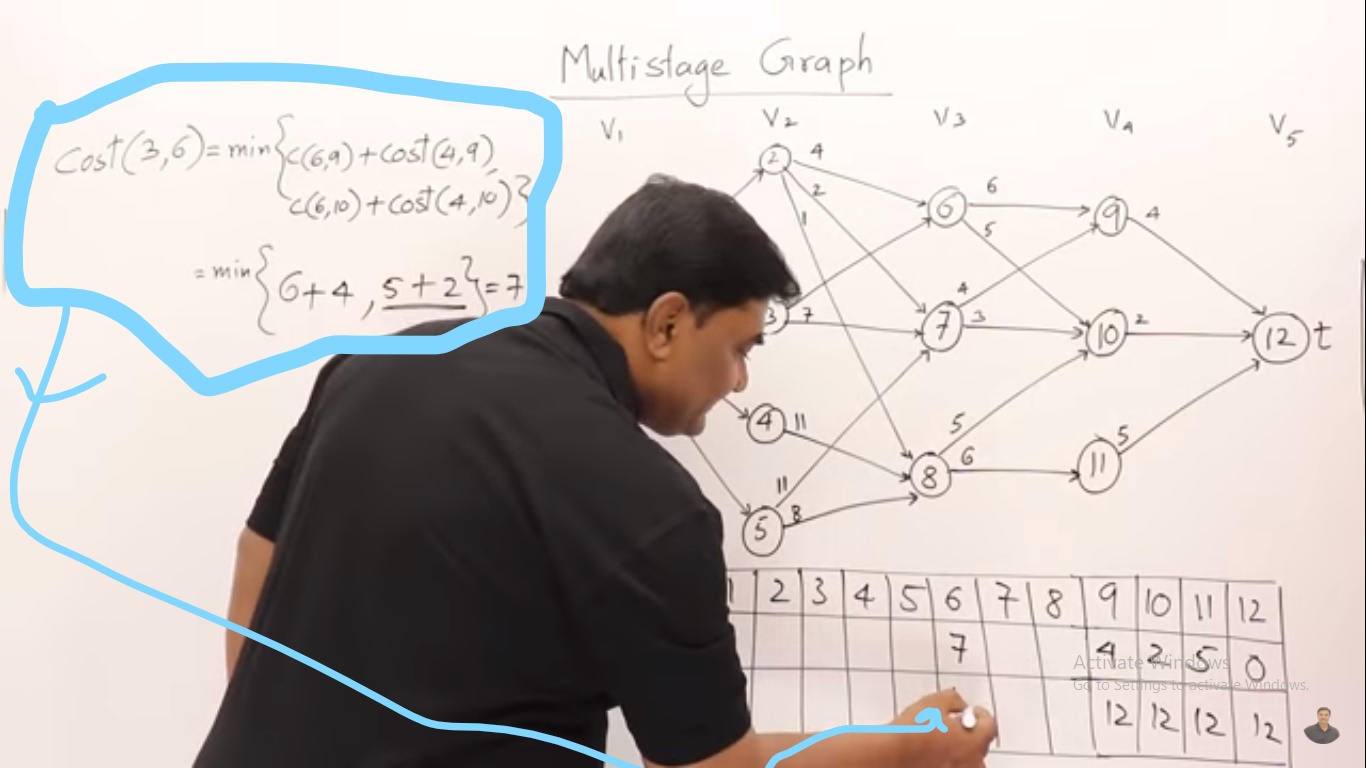 Multistage Graph
V1 V2 V3 V4 V5
Cost(3,6)=min{c(6,9)+cost(4,9),
c(6,10)+cost(4,10)}
=min{6+4,5+2}=7
2 4
2
1
6 6
5
9 4
3 7
7 4
3
10 2
12 t
4 11
8 5
6
11 5
5 11
8
1 2 3 4 5 6 7 8 9 10 11 12
7 4 2 5 0
12 12 12 12
Activate Windows
Go to Settings to activate Windows.